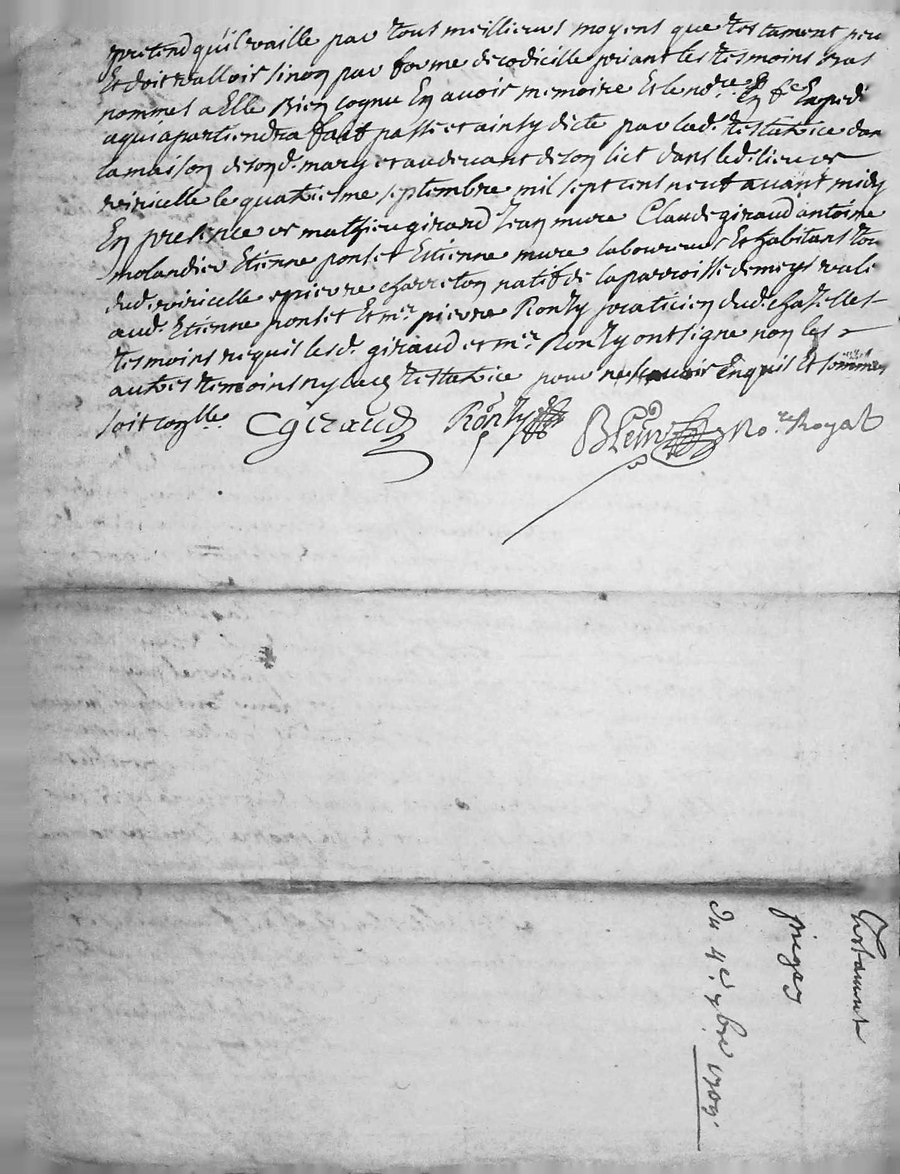 pretend qu'il vaille par tous meilliews moyens que testament peu
Et doit valloir sinon par forme de codicille priant les tesmoins bas
nommes a Elle Bien cognu En avoir memoire Et le nore En fe Expedi
a qui apartiendra fait passe et ainsy dicte par lad. testatrice dan
la maison de sond. mary et audevant de son lict dans led. lieu de
viricelle le quatriesme septembre mil sept cens neuf avant midy
En presence de mathieu girard Jean mure Claude giraud antoine
molandier Etienne ponset Estienne mure laboureurs Et habitans tou
dud. viricelle epierre charreton natif de la parroisse de meys vale
aud. Etienne ponset Et mr. pierre Ronzy praticien dud. chaselles
tesmoins requis lesd. giraud et mr. Ronzy ont signe non les
autres temoins ny lad. testatrice pour ne scavoir Enquis Et sommes
soit conlle. Cgiraud Ronzy No.re Royal
Testament
pregay
Du 4e 7bre 1709.